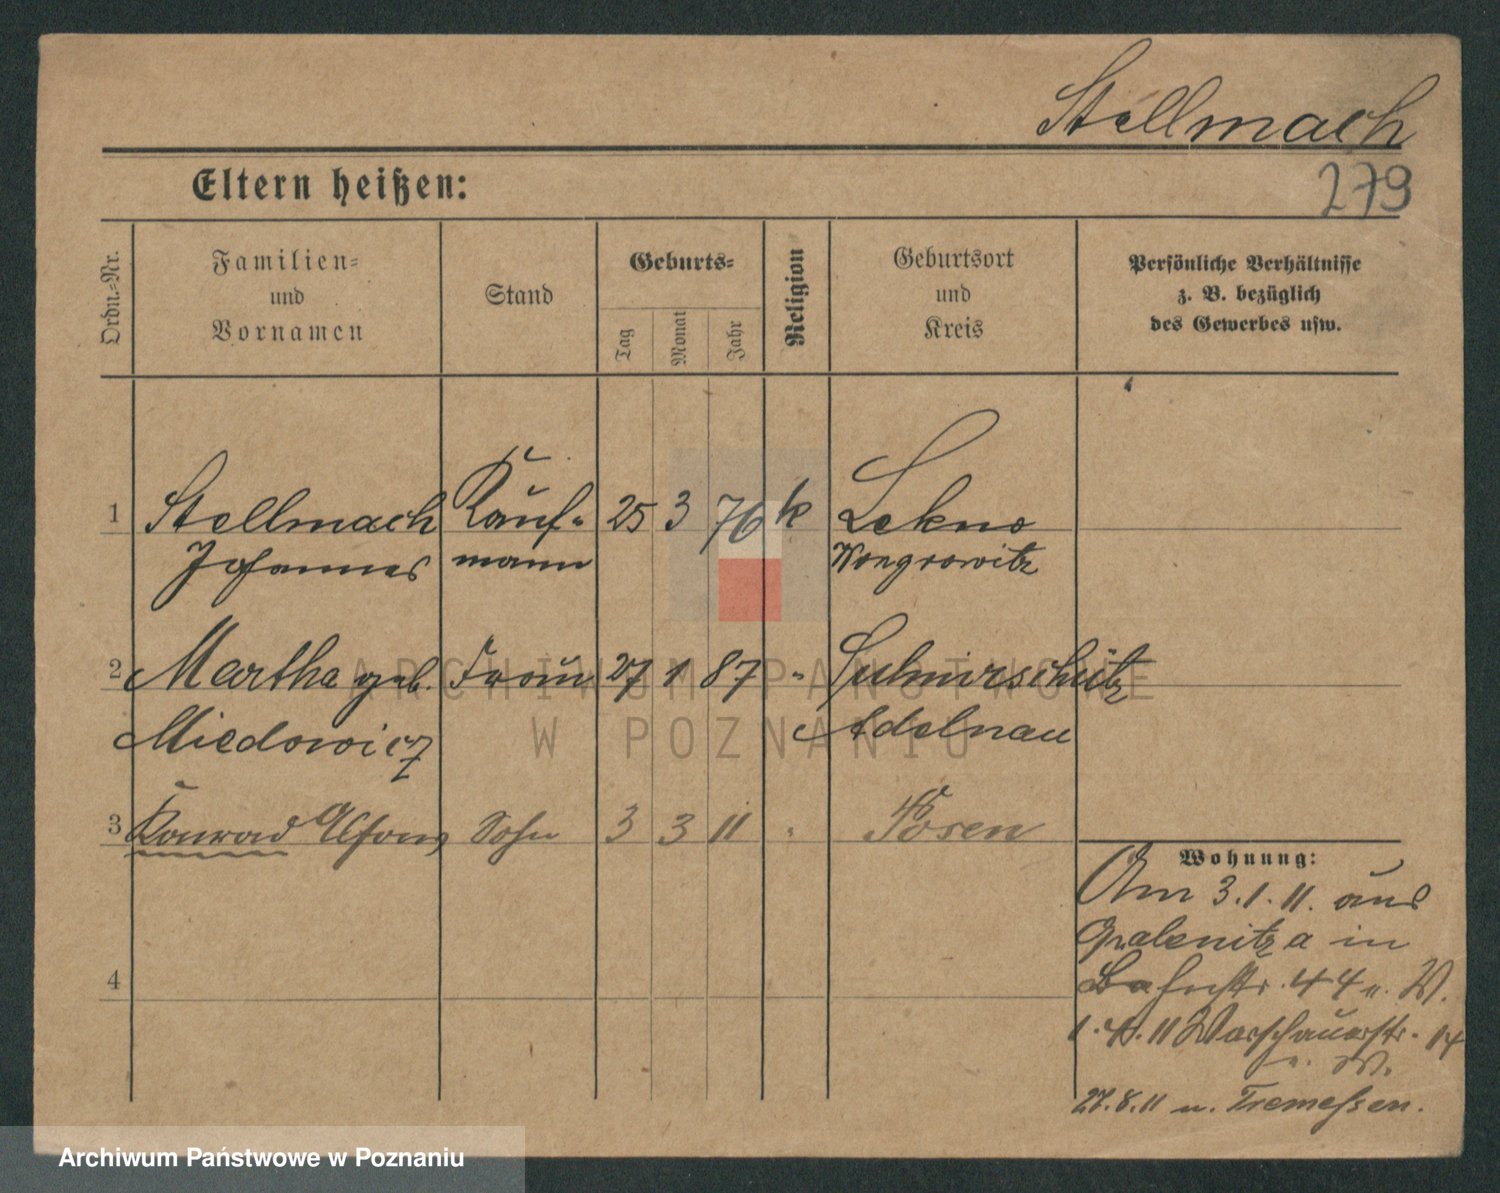 Stellmach
Eltern heißen:
279
Ordn.-Nr.
Familien-
und
Vornamen
Stand
Geburts-
Tag
Monat
Jahr
Religion
Geburtsort
und
Kreis
Persönliche Verhältnisse
z. B. bezüglich
des Gewerbes usw.
1 Stellmach Kauf- 25 3 76 k Lekno
Johannes mann Wongrowitz
2 Martha geb. Frau 27 1 87 " Sulmirschütz
Miedowicz Adelnau
3 Konrad Alfons Sohn 3 3 11 " Posen
Wohnung:
Am 3.1.11. aus
Opalenitza in
Bahnstr. 44 n. W.
1.4.11 Warschauerstr. 14
n. W.
27.8.11 n. Tremessen.
4
ARCHIWUM PAŃSTWOWE
W POZNANIU
Archiwum Państwowe w Poznaniu